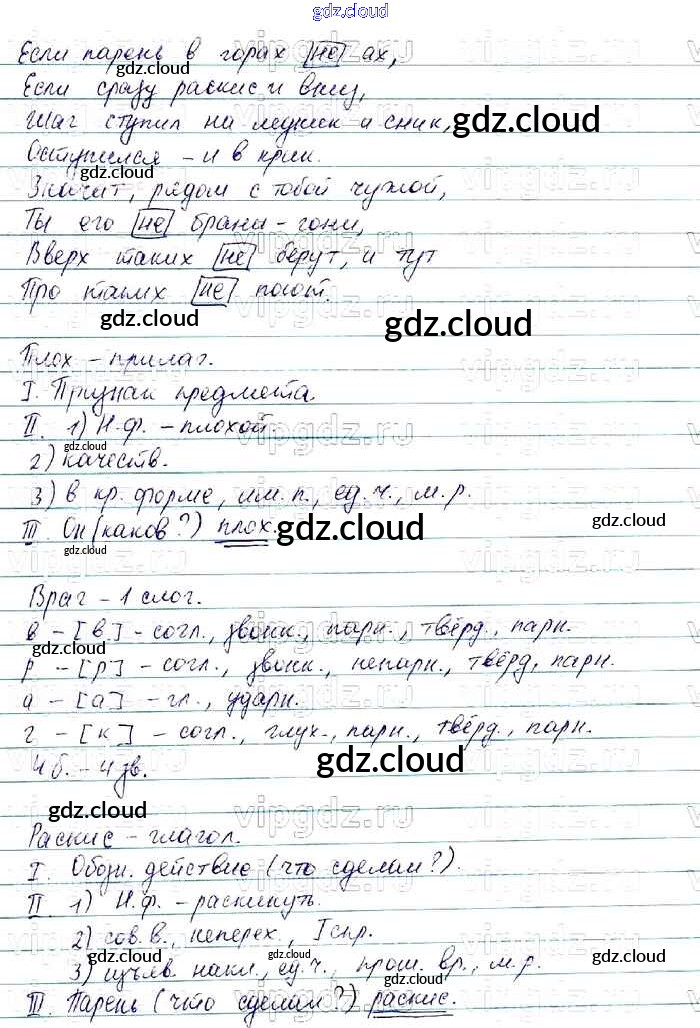 gdz.cloud
Если парень в горах не ах,
gdz.cloud
Если сразу раскис и вниз,
Шаг ступил на ледник и сник,
gdz.cloud
Оступился – и в крик.
gdz.cloud
Значит, рядом с тобой чужой,
Ты его не брани – гони,
Вверх таких не берут, и тут
Про таких не поют.
gdz.cloud
gdz.cloud
Плох – прилаг.
I. Признак предмета.
II. 1) Н.ф. – плохой.
gdz.cloud
2) качеств.
3) в кр. форме, им.п., ед.ч., м.р.
III. Он (каков?) плох.
gdz.cloud
gdz.cloud
gdz.cloud
Враг – 1 слог.
в – [в] – согл., звонк., парн., твёрд., парн.
gdz.cloud
р – [р] – согл., звонк., непарн., твёрд, парн.
а – [а] – гл., ударн.
г – [к] – согл., глух., парн., твёрд., парн.
4 б. – 4 зв.
gdz.cloud
gdz.cloud
Раскис – глагол.
I. Обозн. действие (что сделал?).
II 1) Н.ф. – раскинуть.
2) сов.в., неперех., I спр.
gdz.cloud
gdz.cloud
gdz.cloud
3) изъяв. накл., ед.ч., прош. вр., м.р.
gdz.cloud
III. Парень (что сделал?) раскис.
vipgdz.ru